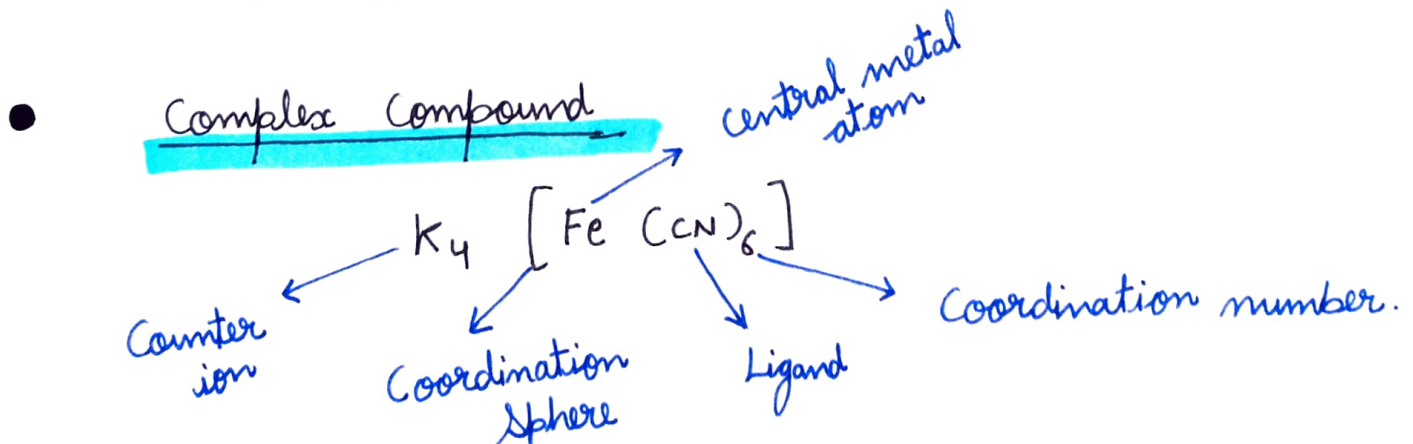 Complex Compound
central metal
atom
K4 [Fe (CN)6]
Counter
ion
Coordination
Sphere
Ligand
Coordination number.